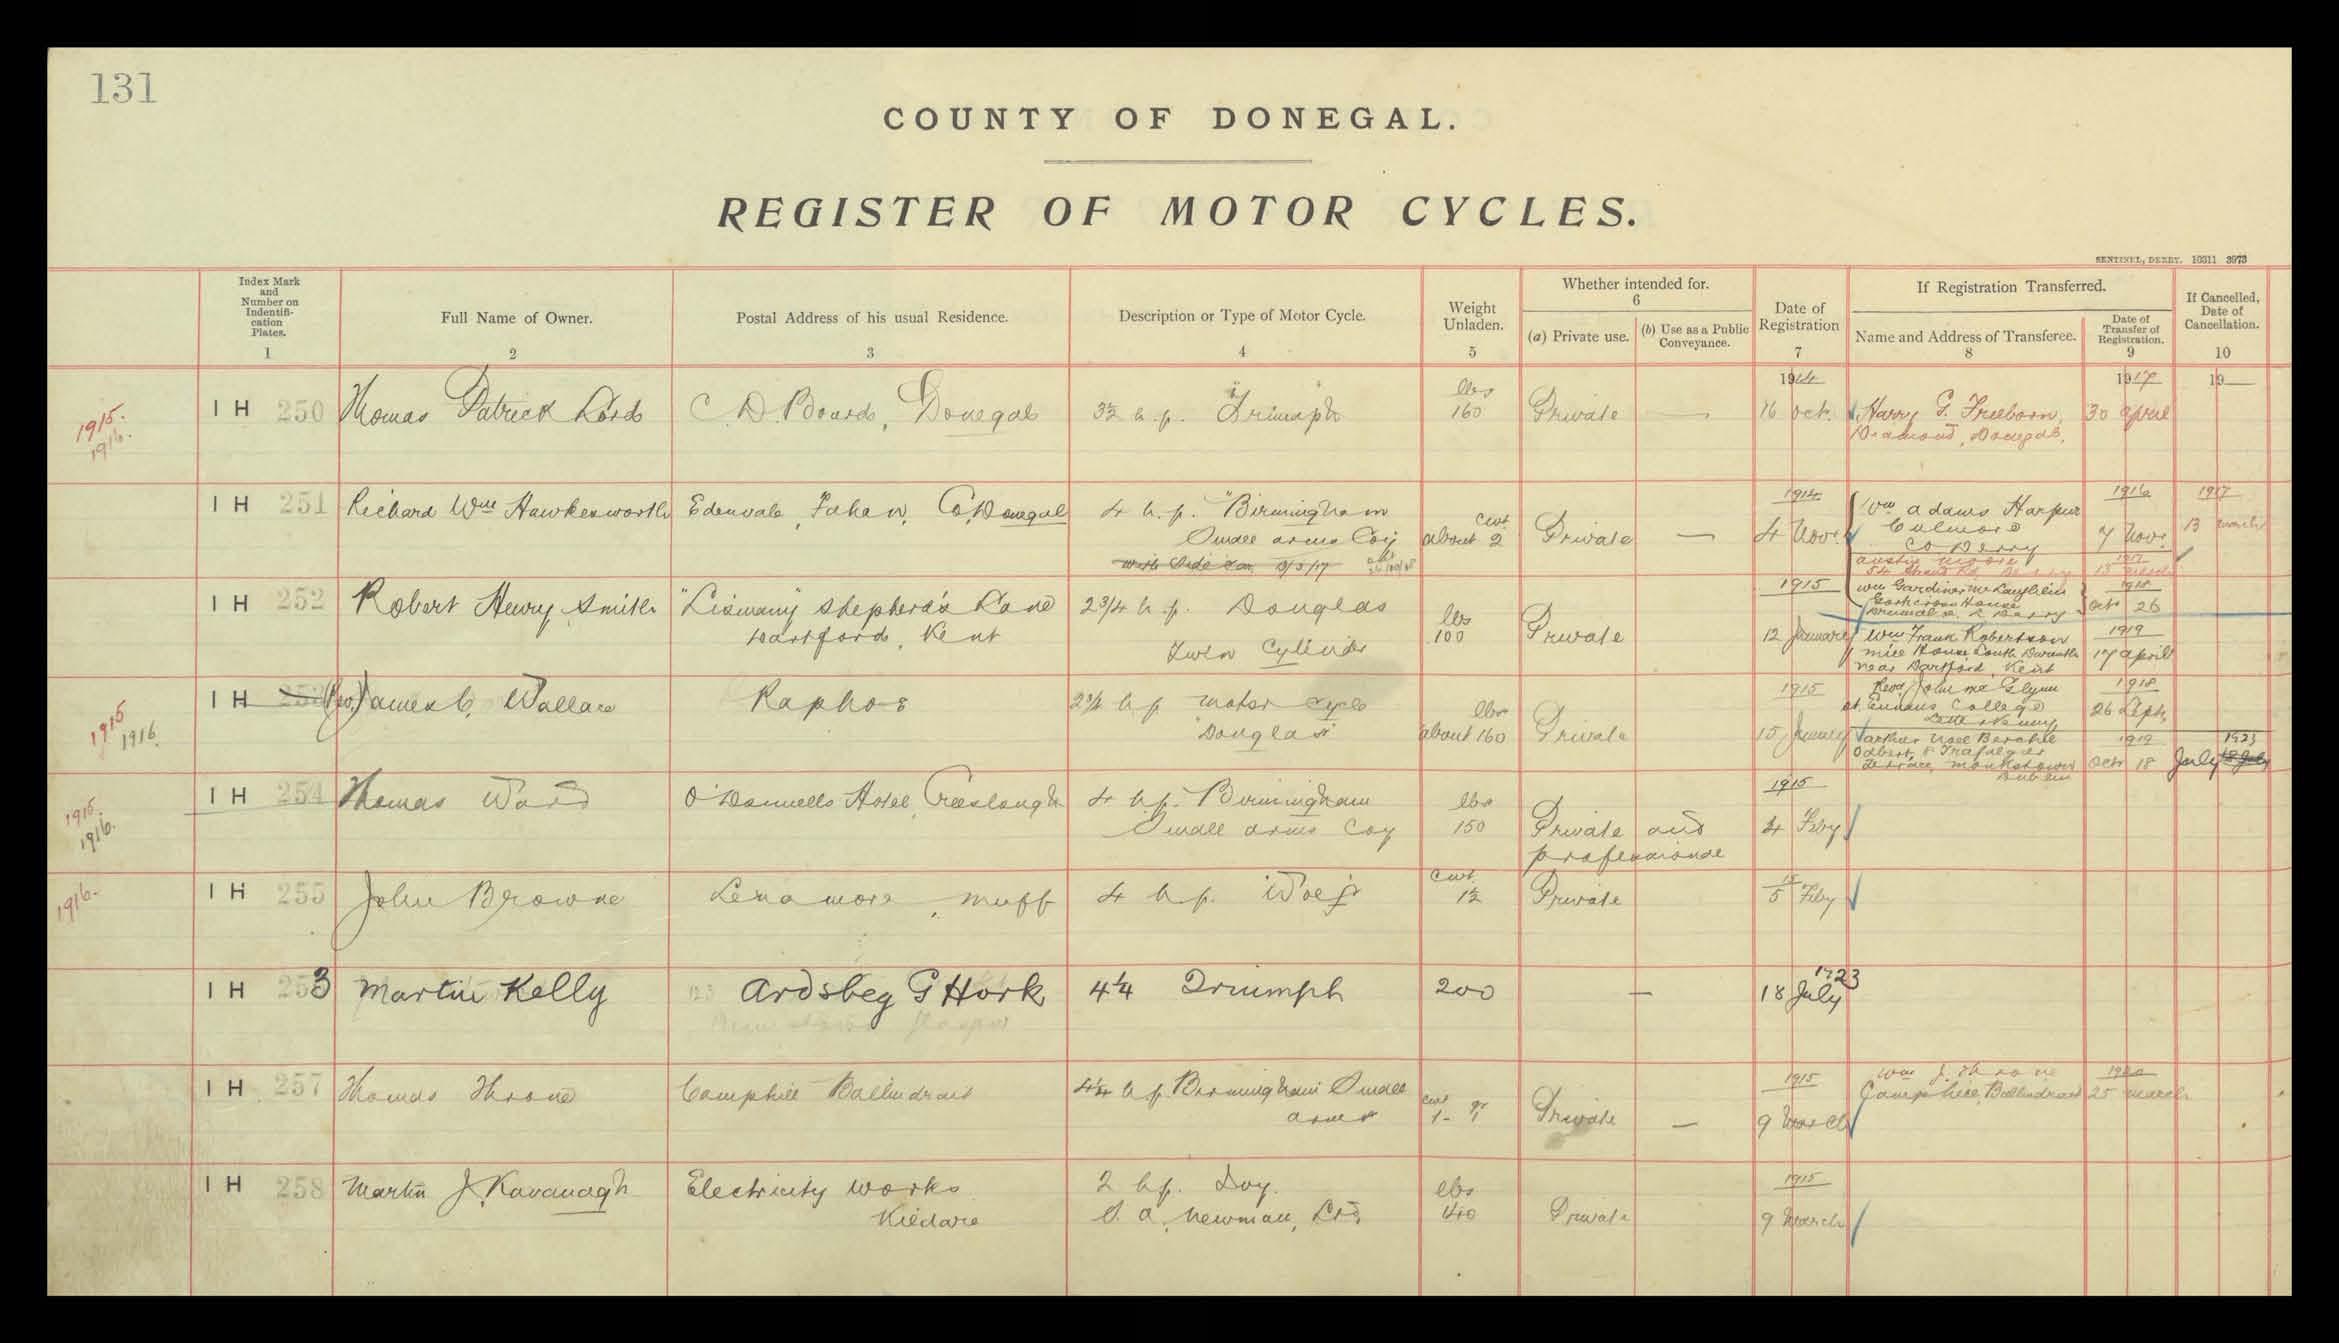 131
COUNTY OF DONEGAL.
REGISTER OF MOTOR CYCLES.
SENTINEL, DERRY. 10311 3973
Index Mark and Number on Indentifi-cation Plates.
1
Full Name of Owner.
2
Postal Address of his usual Residence.
3
Description or Type of Motor Cycle.
4
Weight Unladen.
5
Whether intended for.
6
(a) Private use.
(b) Use as a Public Conveyance.
Date of Registration
7
If Registration Transferred.
Name and Address of Transferee.
8
Date of Transfer of Registration.
9
If Cancelled, Date of Cancellation.
10
1915.
1916.
IH 250 Thomas Patrick Lord C. D. Board, Donegal 3½ h.p. "Triumph" lbs 160 Private — 1914 16 Oct. Harry G. Freeborn, 1917 30 April 19
Diamond, Donegal,
IH 251 Richard Wm Hawkesworth Edenvale, Fahan, Co. Donegal 4 h.p. "Birmingham cwt about 2 Private — 1914 4 Nov. Wm Adams Harper 1916 7 Nov. 1917 13 March
Small Arms Coy Culmore
with Side Car 3/5/17 Co Derry
Austin Moore 1917
54 Strand Rd, 13 March
Wm Gardiner McLaughlin 1918
House Oct 26
IH 252 Robert Henry Smith "Lismany" Shepherd's Lane 2 3/4 h.p. Douglas lbs 100 Private 1915 12 January Wm Frank Robertson 1919
Dartford, Kent Twin Cylinder Mill House South Darenth 17 April
near Dartford, Kent
1915
1916.
IH 253 (Rev.) James C. Wallace Raphoe 2 3/4 h.p. motor cycle lbs about 160 Private 1915 15 January Revd John McGlynn 1918
"Douglas" St. Eunans College 26 Sept,
Letterkenny
Arthur Noel 1919 1923
8 Trafalgar Octr 18 July 18 July
Terrace, Monkstown
Dublin
1915.
1916.
IH 254 Thomas Ward O'Donnells Hotel, Creeslough 4 h.p. Birmingham lbs 150 Private and 1915 4 Feby
Small Arms Coy professional
1916.
IH 255 John Browne Lenamore, Muff 4 h.p. cwt 1½ Private 15 5 Feby
IH 253 Martin Kelly Ardsbeg G Hork 4¼ Triumph 200 — 1923 18 July
IH 257 Thomas Throne Camphill Ballindrait 4¼ h.p. Birmingham Small cwt 1 - qr 1 Private — 1915 9 March Wm J. Throne 1920
Arms Camphill, Ballindrait 25 March
IH 258 Martin J. Kavanagh Electricity Works 2 h.p. Ivy. lbs Private 1915 9 March
Kildare S. A. Newman, Ltd,